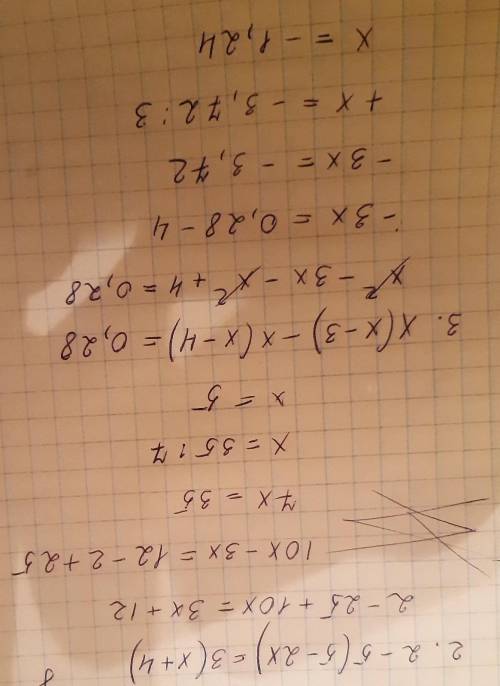 2. 2-5(5-2x)=3(x+4)
2-25+10x=3x+12
10x-3x=12-2+25
7x=35
x=35:7
x=5
3. x(x-3)-x(x-4)=0,28
x²-3x-x²+4=0,28
-3x=0,28-4
-3x=-3,72
+x=-3,72:3
x=-1,24